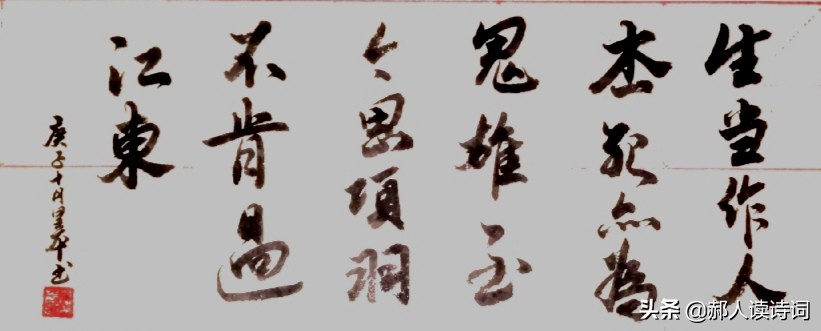 生当作人
杰死亦為
鬼雄至
今思項羽
不肯過
江東
庚子十月昱华书
头条 @郝人读诗词